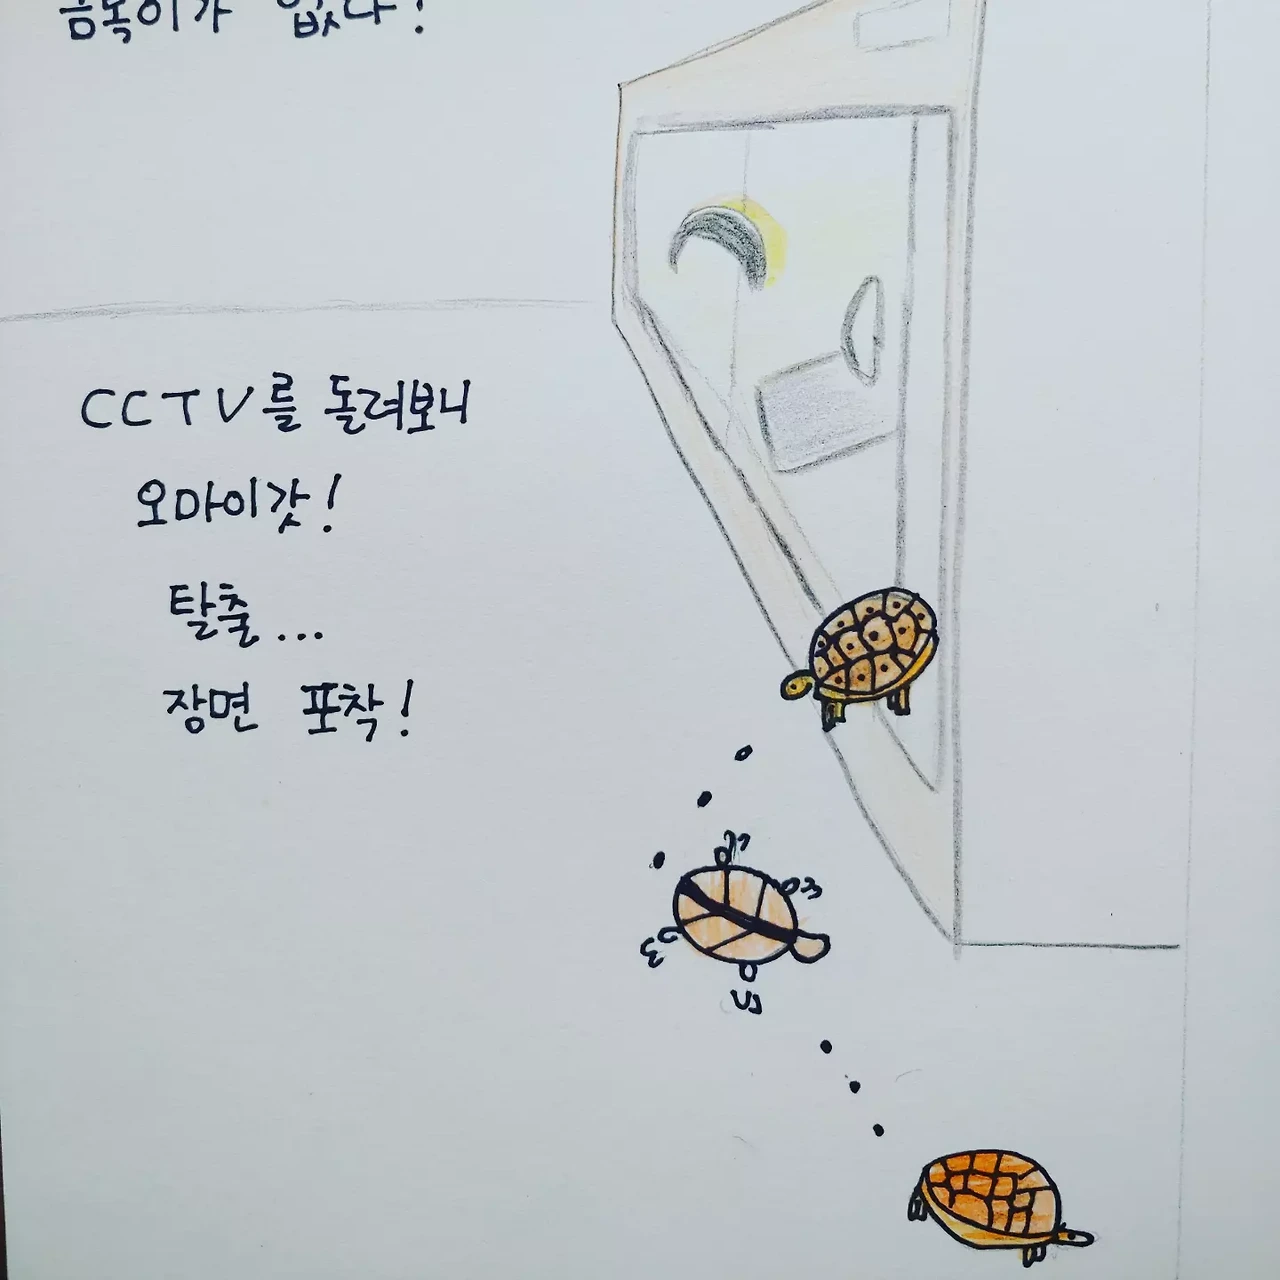 금복이가 없다!
CCTV를 돌려보니
오마이갓!
탈출...
장면 포착!